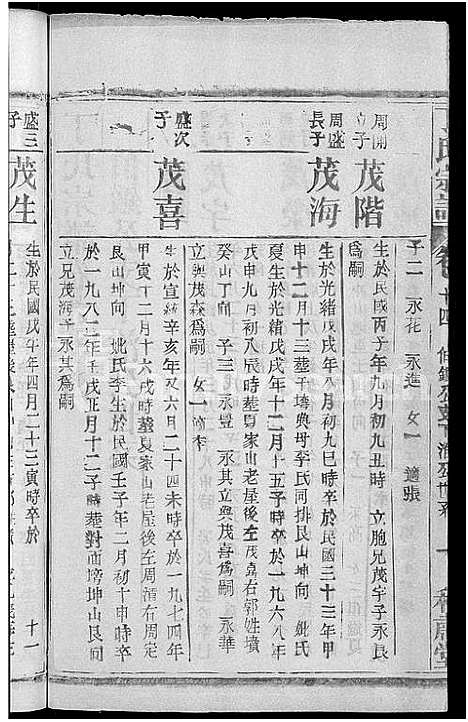 氏宗譜
卷
十四
子二 永花 永進 女一 適張
周開
立子
茂階
生於民國丙子年九月初九丑時 立胞兄茂宇子永長
為嗣
周盛
長子
茂海
生於光緒戊戌年八月初九巳時卒於民國三十三年甲
申十二月十三時塟與母李氏同排艮山坤向 妣氏
夏生於光緒戊戌年十二月十五子時卒於一九六八年
戊申九月初八辰時塟夏家山老屋後左茂嘉右郭姓墳
癸山丁向 子三 永豐 永其立與茂喜為嗣 永華
立與茂森為嗣 女一 適李
盛次
子
茂喜
生於宣統辛亥年又六月二十四未時卒於一九七四年
甲寅十二月十六戌時塟夏家山老屋後左周濆右周定
艮山坤向 妣氏李生於民國壬子年二月初十申時卒
於一九八三年壬戌正月十二子時塟對面塝坤山艮向
立兄茂海子永其為嗣
盛三
子
茂生
生於民國戊午年四月二十三寅時卒於
十一